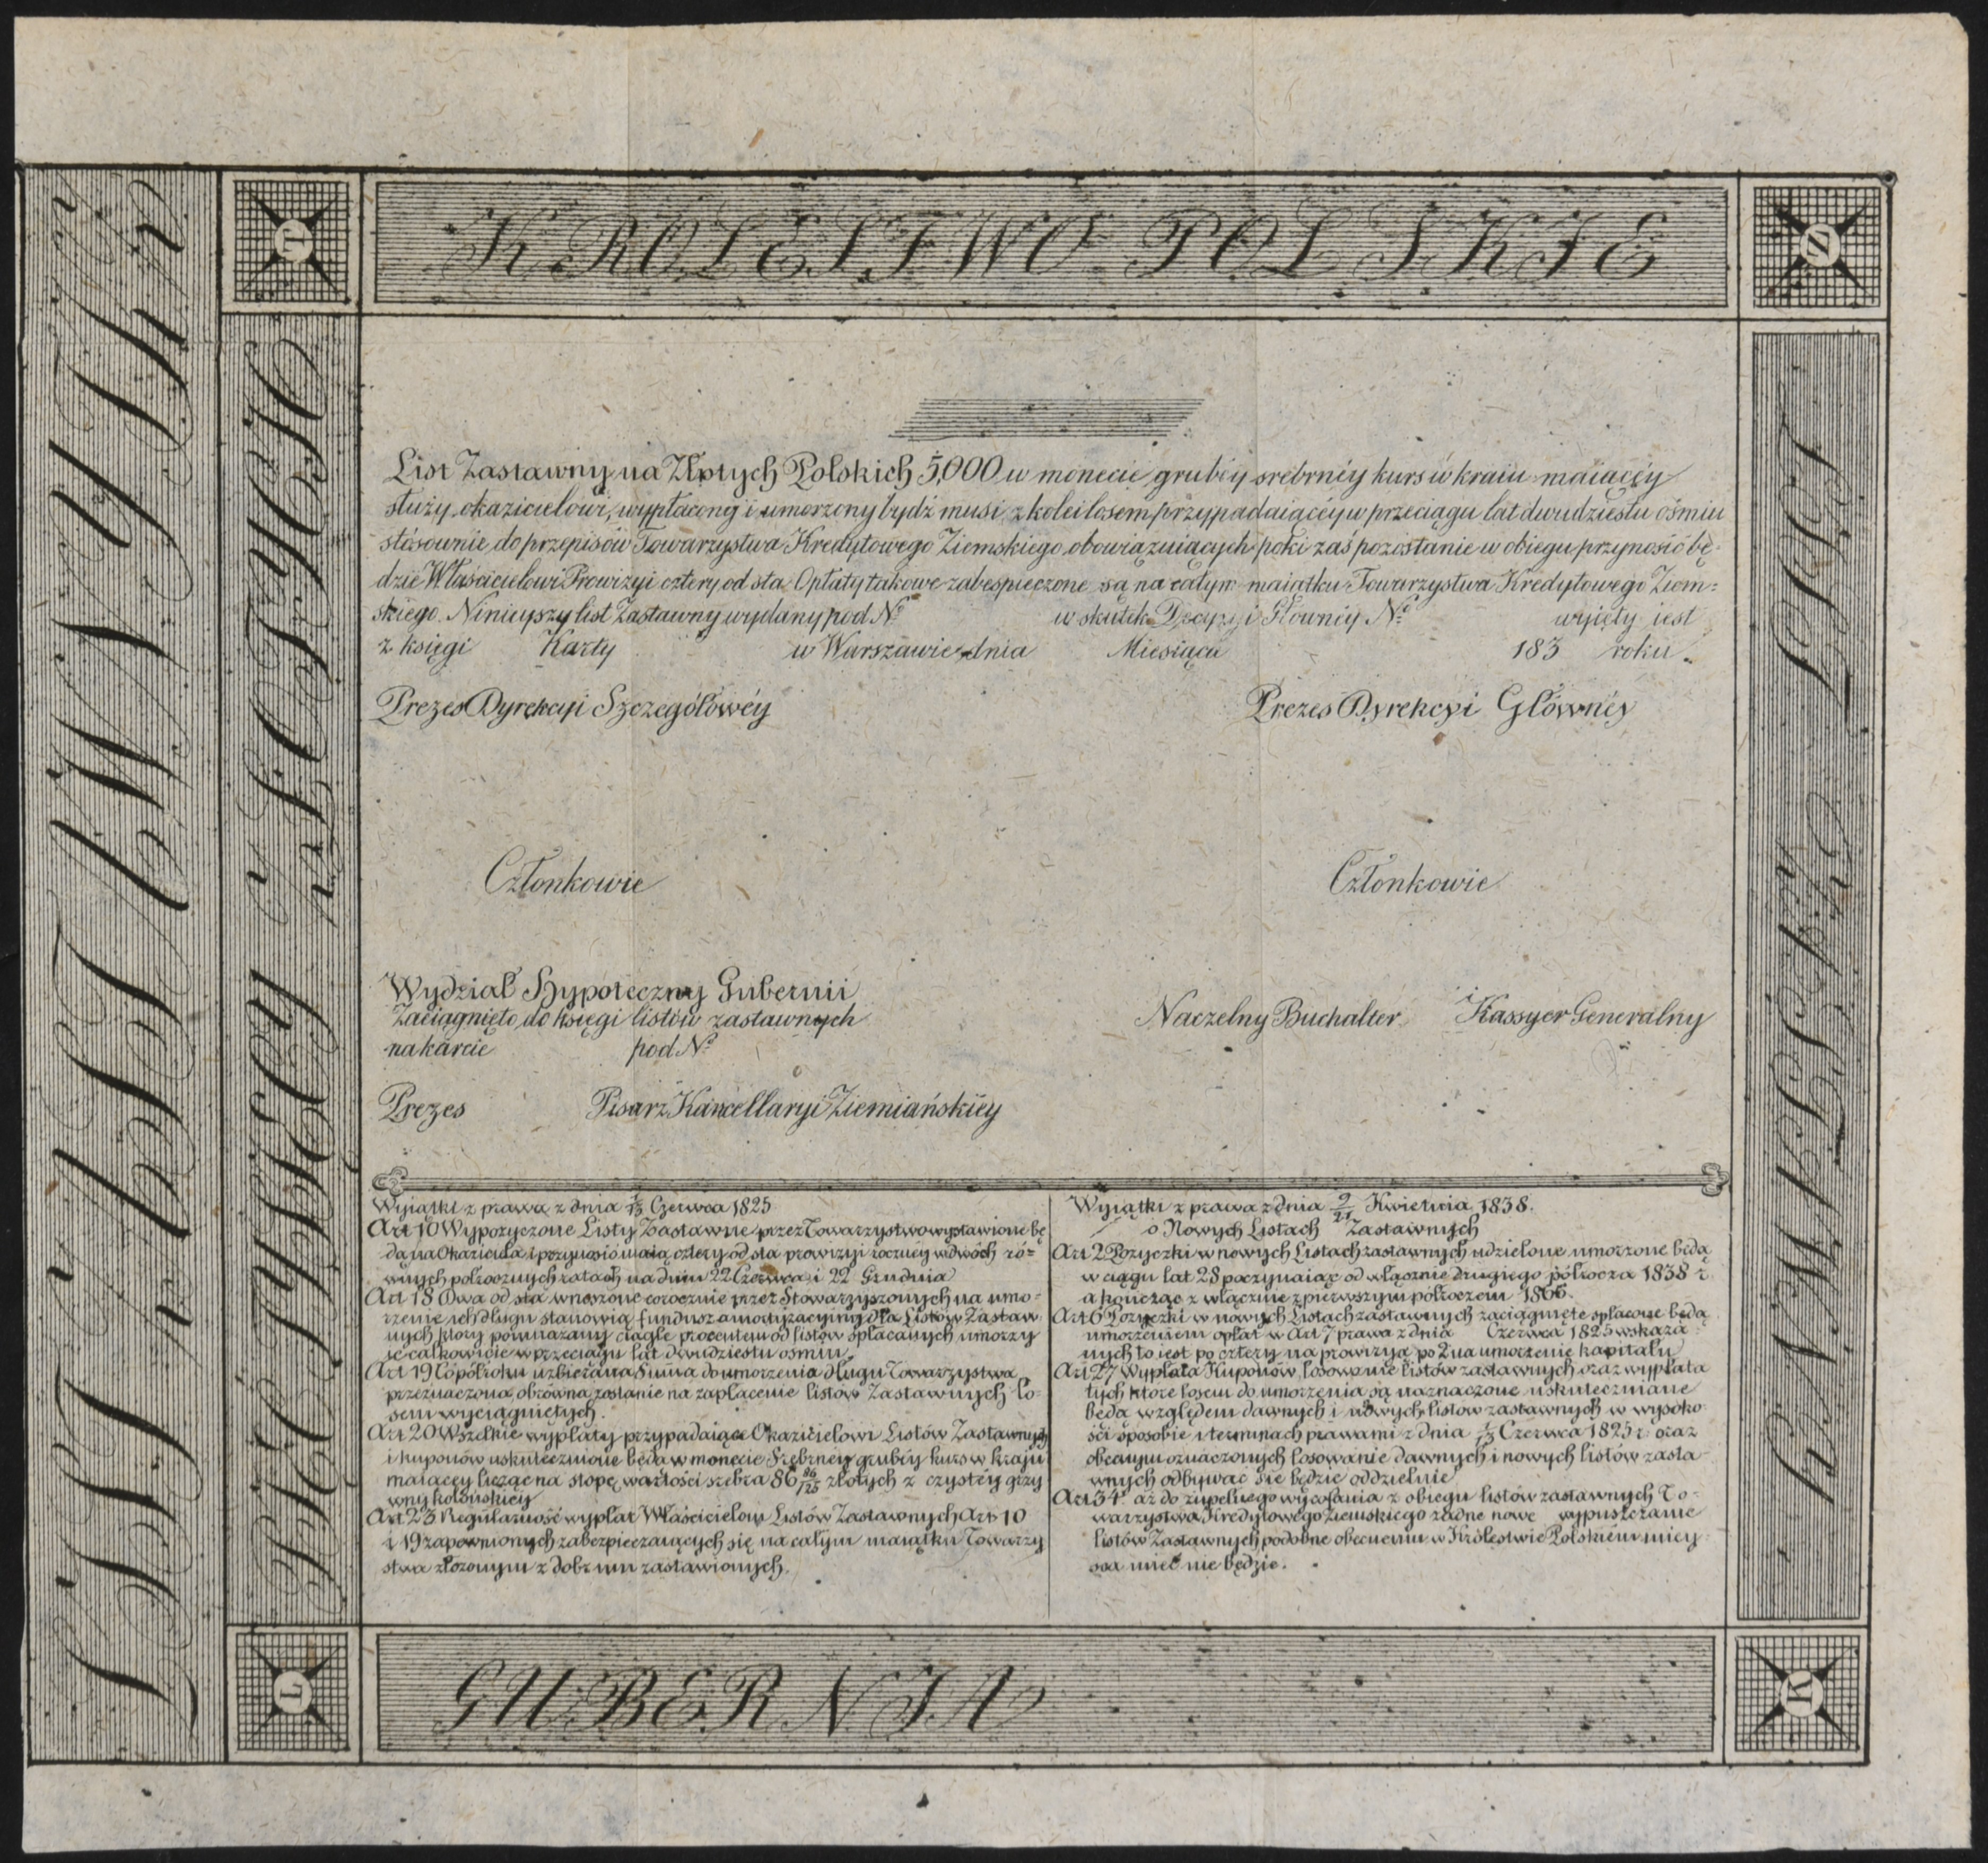 KROLESTWO POLSKIE
T
Z
L
K
LIST ZASTAWNY
GUBERNIA
List Zastawny na Złotych Polskich 5,000 w monecie grubéy srebrnéy kurs w kraiu maiącéy
służy okazicielowi, wypłacony i umorzony bydź musi z kolei losem przypadaiącéy w przeciągu lat dwudziestu ośmiu
stósownie do przepisów Towarzystwa Kredytowego Ziemskiego obowiązuiących poki zaś pozostanie w obiegu przynosić bę-
dzie Właścicielowi Prowizyi cztery od sta Opłaty takowe zabespieczone są na całym maiątku Towarzystwa Kredytowego Ziem=
skiego. Ninieyszy list Zastawny wydany pod № w skutek Decyzyi Głównéy № wyięty iest
z księgi Karty w Warszawie dnia Miesiąca 183 roku.
Prezes Dyrekcyi Szczegółowéy Prezes Dyrekcyi Główney
Członkowie Członkowie
Wydział Hypoteczny Gubernii
Zaciągnięto do księgi listów zastawnych
na karcie pod №
Naczelny Buchalter Kassyer Generalny
Prezes Pisarz Kancellaryi Ziemiańskiéy
Wyiątki z prawa z dnia 1/13 Czerwca 1825
Art 10 Wypożyczone Listy Zastawne przez Towarzystwo wystawione bę
dą na Okaziciela i przynosić maią cztery od sta prowizyi roczney w dwóch ró=
wnych półrocznych ratach na dniu 22 Czerwca i 22 Grudnia
Art 18 Dwa od sta wnoszone corocznie przez Stowarzyszonych na umo-
rzenie ich długu stanowią fundusz amortyzacyiny dla Listów Zastaw
nych który pomnażany ciągle procentem od listów spłacanych umorzy
ie całkowicie w przeciągu lat dwudziestu ośmiu
Art 19 Co półroku uzbierana Summa do umorzenia długu Towarzystwa
przeznaczona obrówna zostanie na zapłacenie listów Zastawnych lo-
sem wyciągniętych.
Art 20 Wszelkie wypłaty przypadaiące Okazicielowi Listów Zastawnych
i kuponów uskutecznione będą w monecie Srebrney grubéy kurs w kraju
maiącey licząc na stopę wartości srebra 86 86/125 złotych z czystéy grzy
wny kolońskiey
Art 23 Regularność wypłat Właścicielom Listów Zastawnych Art 10
i 19 zapewnionych zabezpieczaiących się na całym maiątku Towarzy
stwa złożonym z dobr mu zastawionych.
Wyiątki z prawa z dnia 9/21 Kwietnia 1838.
o Nowych Listach Zastawnych
Art 2 Pożyczki w nowych Listach zastawnych udzielone umorzone będą
w ciągu lat 28 poczynaiąc od włącznie drugiego półrocza 1838 r
a kończąc z włącznie z pierwszym półroczem 1866.
Art 6 Pożyczki w nowych Listach zastawnych zaciągnięte spłacone będą
umorzeniem opłat w Art 7 prawa z dnia Czerwca 1825 wskaza
nych to iest po cztery na prowizyą po 2 na umorzenie kapitału
Art 27 Wypłata Kuponów, losowanie listów zastawnych oraz wypłata
tych które losem do umorzenia są naznaczone uskuteczniane
będą względem dawnych i nowych listów zastawnych w wysoko-
ści sposobie i terminach prawami z dnia 1/13 Czerwca 1825 r oraz
obecnym oznaczonych losowanie dawnych i nowych listów zasta-
wnych odbywać się będzie oddzielnie
Art 34 aż do zupełnego wycofania z obiegu listów zastawnych To-
warzystwa Kredytowego Ziemskiego żadne nowe wypuszczanie
listów Zastawnych podobne obecnemu w Królestwie Polskiém miey-
sca mieć nie będzie.